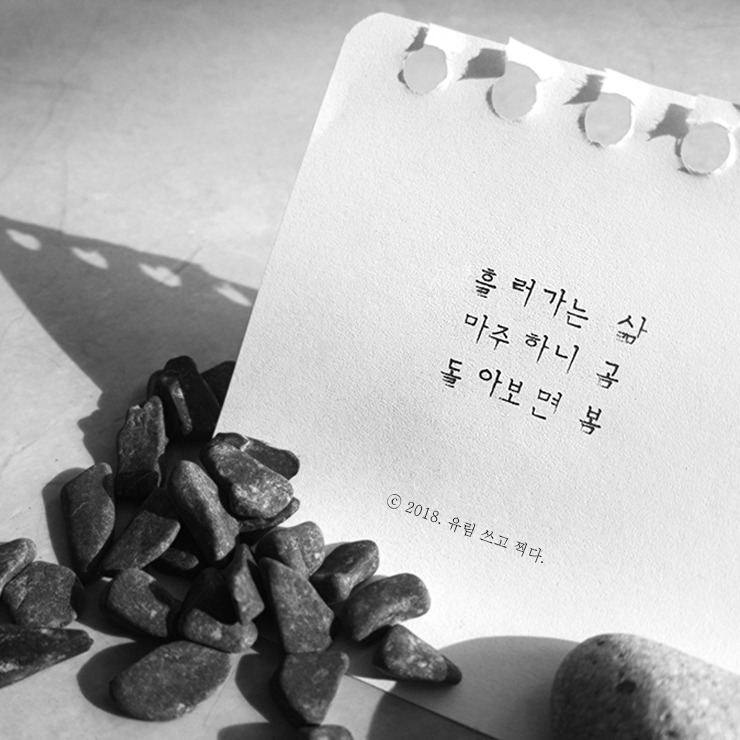 흘러가는 삶
마주하니 곰
돌아보면 봄
ⓒ 2018. 유림 쓰고 찍다.